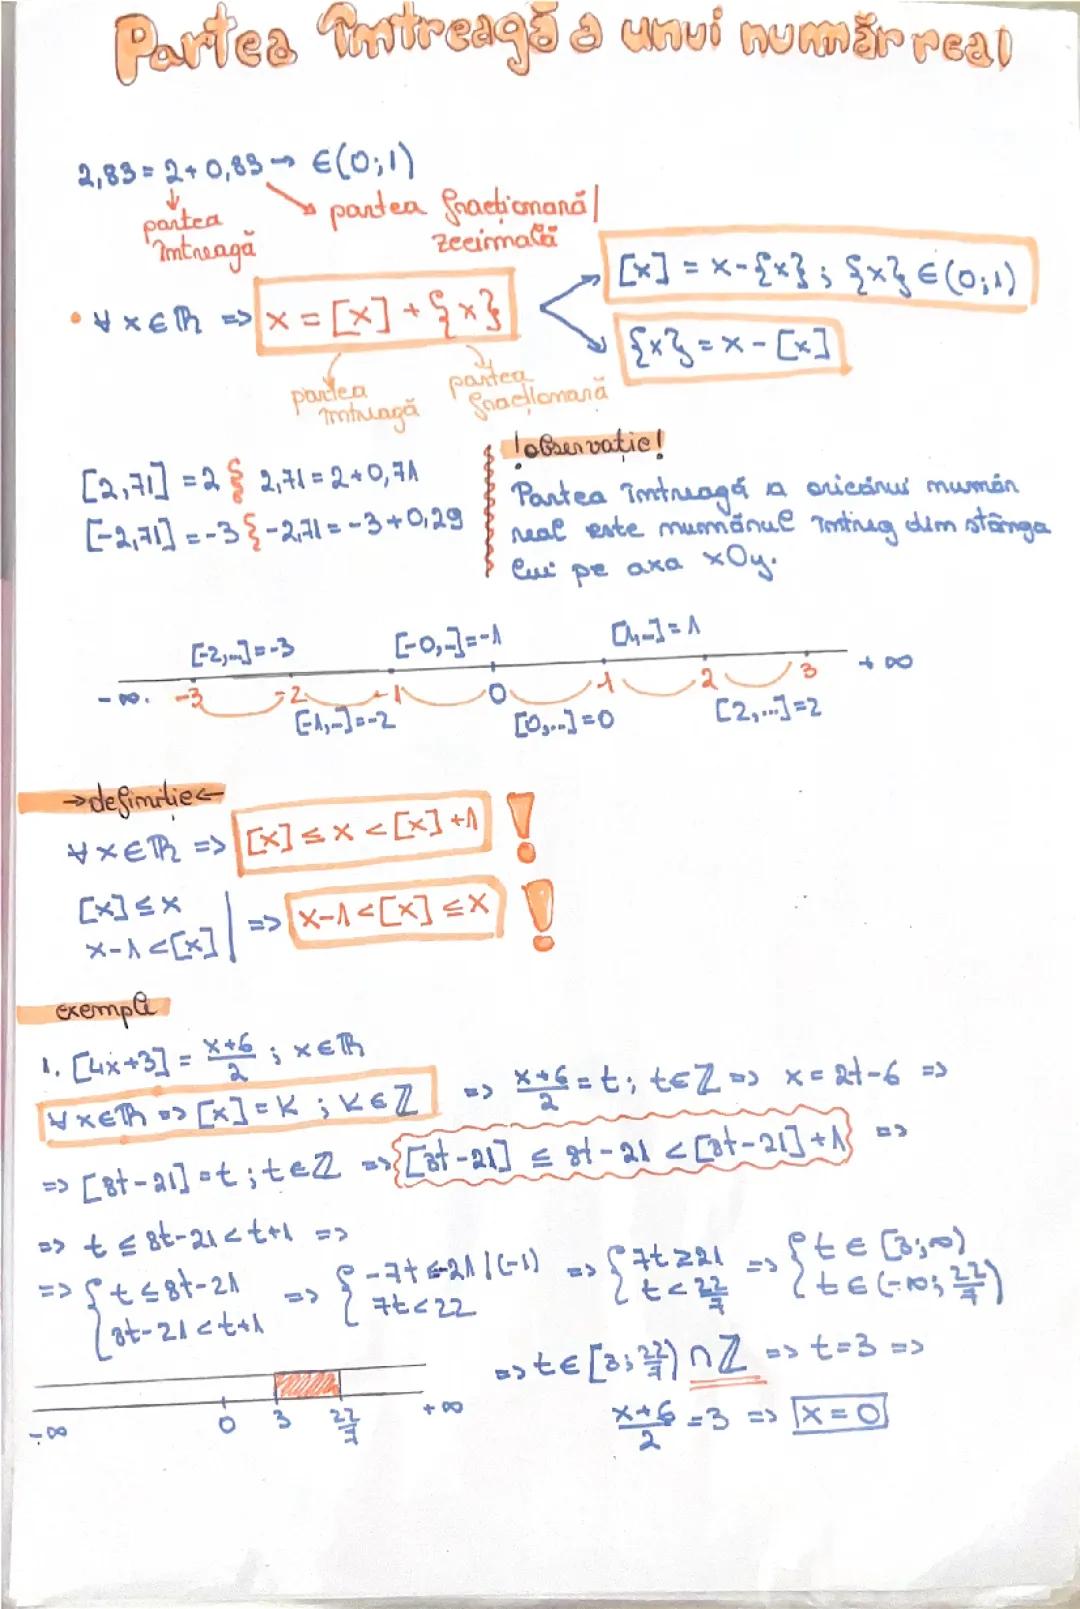 Partea întreagă a unui număr real
2,83 = 2 + 0,83 → ∈(0;1)
partea întreagă
partea fracționară/ zecimală
• ∀ x ∈ ℝ => x = [x] + {x}
[x] = x - {x} ; {x} ∈ (0;1)
{x} = x - [x]
partea întreagă
partea fracționară
[2,71] = 2 } 2,71 = 2 + 0,71
[-2,71] = -3 } -2,71 = -3 + 0,29
! observație!
Partea întreagă a oricărui număr
real este numărul întreg din stânga
lui pe axa xOy.
[-2,...] = -3 [-0,...] = -1 [1,...] = 1
-∞ -3 -2 -1 0 1 2 3 +∞
[-1,...] = -2 [0,...] = 0 [2,...] = 2
→definiție←
∀ x ∈ ℝ => [x] ≤ x < [x] + 1 !
[x] ≤ x
x - 1 < [x] | => x - 1 < [x] ≤ x !
exemple
1. [4x+3] = (x+6)/2 ; x ∈ ℝ
∀ x ∈ ℝ => [x] = K ; K ∈ ℤ => (x+6)/2 = t ; t ∈ ℤ => x = 2t - 6 =>
=> [8t-21] = t ; t ∈ ℤ => [8t-21] ≤ 8t-21 < [8t-21] + 1 =>
=> t ≤ 8t-21 < t+1 =>
=> { t ≤ 8t-21 => { -7t ≤ -21 |(-1) => { 7t ≥ 21 => { t ∈ [3;∞)
8t-21 < t+1 7t < 22 t < 22/7 t ∈ (-∞; 22/7)
=> t ∈ [3; 22/7) ∩ ℤ => t = 3 =>
-∞ 0 3 22/7 +∞
(x+6)/2 = 3 => x = 0